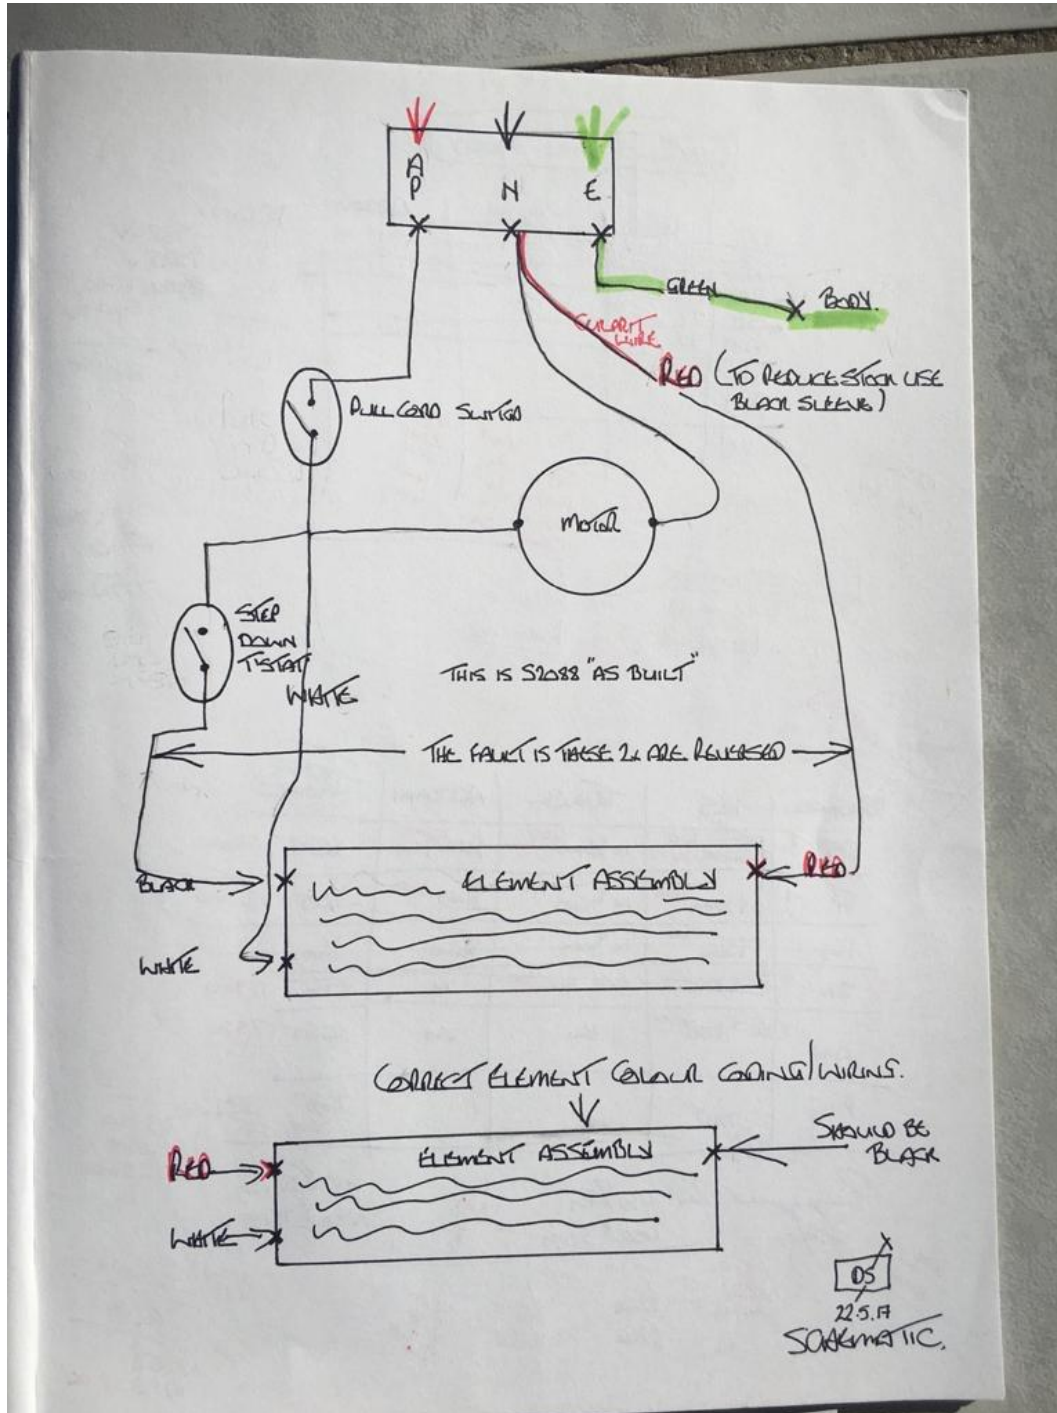 AP N E
GREEN
BODY.
CULPRIT
WIRE
RED (TO REDUCE STOCK USE
BLACK SLEEVE)
PULL CORD SWITCH
MOTOR
STEP
DOWN
T'STAT
WHITE
THIS IS S2088 "AS BUILT"
THE FAULT IS THESE 2x ARE REVERSED
BLACK
ELEMENT ASSEMBLY
RED
WHITE
CORRECT ELEMENT COLOUR CODING/WIRING.
RED
ELEMENT ASSEMBLY
SHOULD BE
BLACK
WHITE
DS
22.5.17
SCHEMATIC.